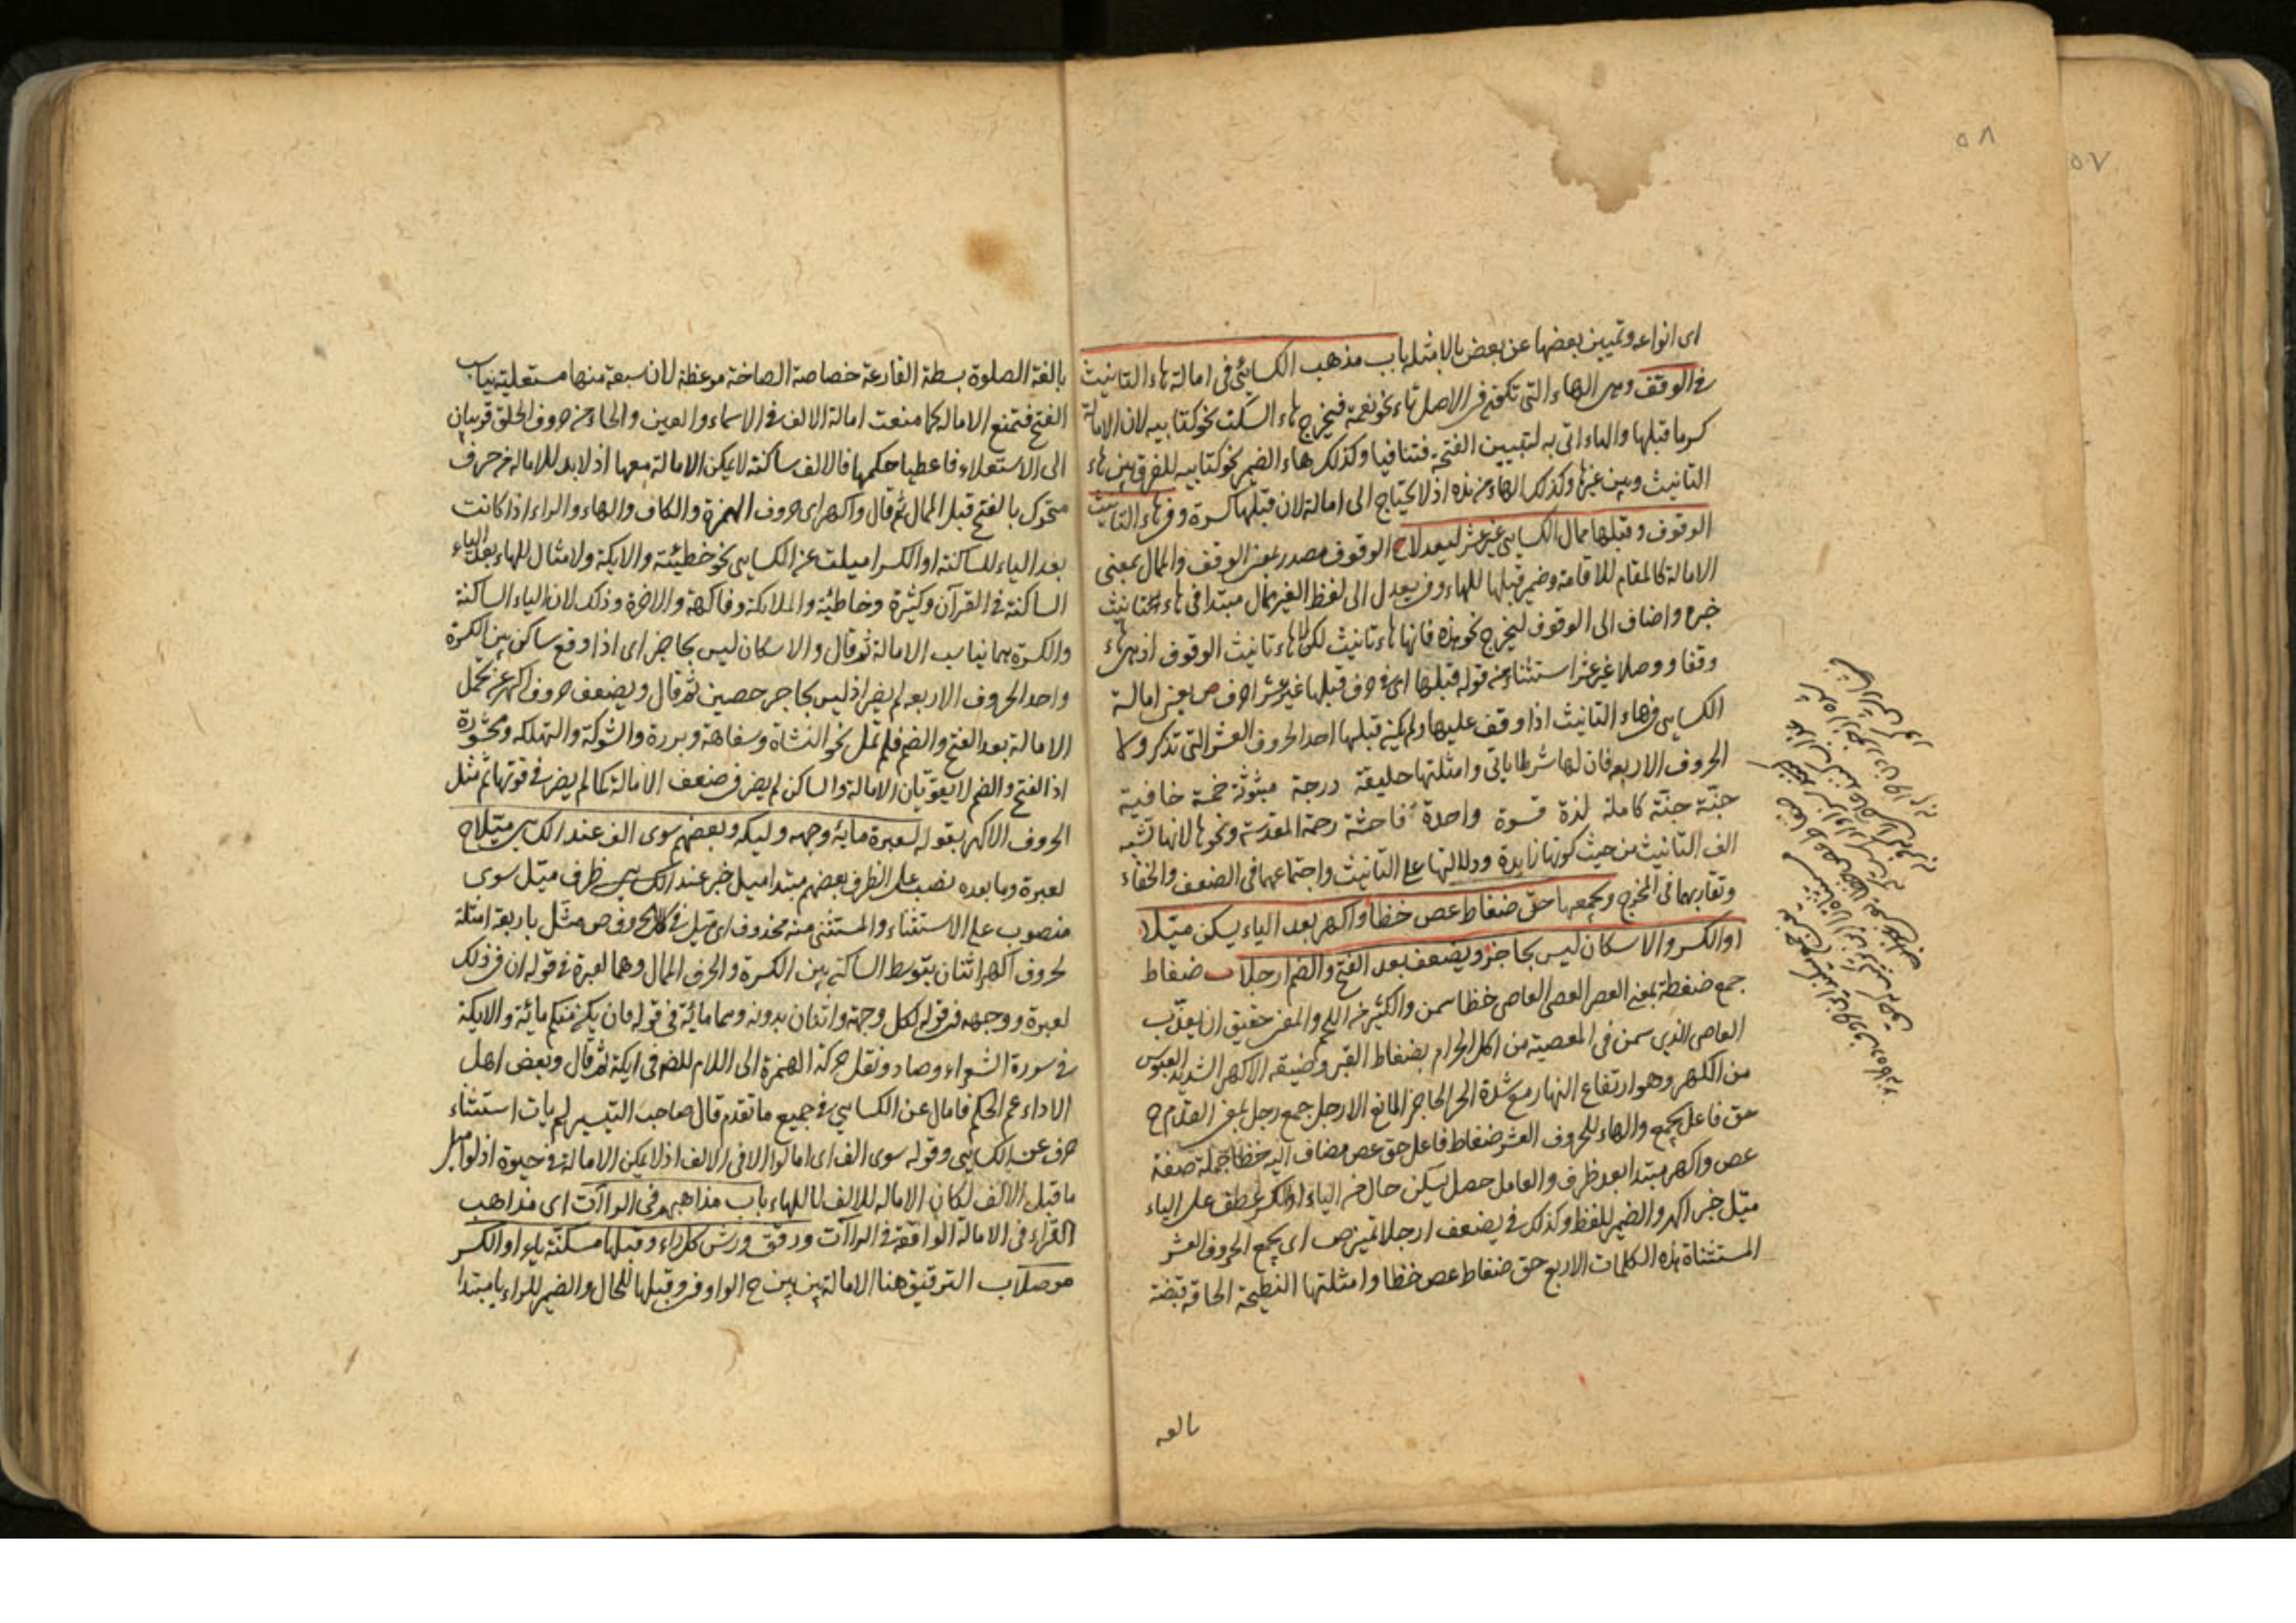 ٥٨
٥٧
اى انواعه وتميين بعضها عن بعض بالامثله باب مذهب الكسائى فى امالة هاء التانيث
فى الوقف وهى الهاء التى تكون فى الاصل تاء نحو نعمة فيخرج هاء السكت نحو كتابيه لان الامالة
كسر ما قبلها والهاء اتى به لتبيين الفتحة فتنافيا وكذلك هاء الضمير نحو كتابيه للفرق بين هاء
التانيث وبين غيرها وكذلك الهاء من هذه اذ لا يحتاج الى امالة لان قبلها كسرة وفى هاء التانيث
الوقوف وقبلها ممال الكسايى غير عشر ليعدلا ح الوقوف مصدر بمعنى الوقف والممال بمعنى
الامالة كالمقام للاقامة وضمير قبلها للهاء وفى يعدل الى لفظ الغير ممال مبتدا فى هاء التانيث
خبره واضاف الى الوقوف ليخرج نحو هذه فانها هاء تانيث لكن لا هاء تانيث الوقوف اذ هى هاء
وقفا ووصلا غير عشر استثناء من قوله قبلها اى فى حرف قبلها غير عشر احرف ص يعنى امالة
الكسايى فى هاء التانيث اذا وقف عليها ولم يكن قبلها احد الحروف العشر التى تذكر ولا
الحروف الاربعه فان لها شرطا ياتى وامثلتها خليفة درجة مبثوثة خمسة خافية
جنّة جنّة كاملة لذة قسوة واحدة فاحشة رحمة المقدسة ونحوها لانها تشبه
الف التانيث من حيث كونها زايدة ودلالتها على التانيث واجتماعهما فى الضعف والخفاء
وتقاربهما فى المخرج ويجمعها حق ضغاط عص خظا واكهر بعد الياء يسكن ميّلا
اوالكسر والاسكان ليس بحاجز ويضعف بعد الفتح والضم ارجلا ب ضغاط
جمع ضغطة بمعنى العصر العصى العاصى خظا سمن والكثير من اللحم والمعنى حقيق ان يعذّب
العاصى الذى سمن فى المعصية من اكل الحرام بضغاط القبر وضيقه الاكهر الشديد العبوس
من الكهر وهو ارتفاع النهار مع شدة الحر الحاجز المانع الارجل جمع رجل بمعنى القدم ح
حق فاعل يجمع والهاء للحروف العشر ضغاط فاعل حق عص مضاف اليه خظا جملة صفة
عص واكهر مبتدا بعد ظرف والعامل حصل يسكن حال من الياء او الكسر عطف على الياء
ميّل خبر اكهر والضمير للفظ وكذلك فى يضعف ارجلا تميز ص اى يجمع الحروف العشر
المستثناة هذه الكلمات الاربع حق ضغاط عص خظا وامثلتها النطيحة الحاقة قبضة
بالغه
بالغة الصلوة بسطة القارعة خصاصة الصاخة موعظة لان سبعة منها مستعلية يناسب
الفتح فتمنع الامالة كما منعت امالة الالف فى الاسماء والعين والحاء من حروف الحلق قريبان
الى الاستعلاء فاعطيا حكمها فالالف ساكنة لا يمكن الامالة معها اذ لا بد للامالة من حرف
متحرك بالفتح قبل الممال ثم قال واكهر اى حروف الهمزة والكاف والهاء والراء اذا كانت
بعد الياء للساكنة او الكسر اميلت عن الكسايى نحو خطيئة والايكة ولا مثال للهاء بعد الياء
الساكنة فى القرآن وكثيرة وخاطئة والملائكة وفاكهة والاخرة وذلك لان الياء الساكنة
والكسرة بهما يناسب الامالة ثم قال والاسكان ليس بحاجز اى اذا وقع ساكن بين الكسرة
واحد الحروف الاربعه لم يضر اذ ليس بحاجر حصين ثم قال ويضعف حروف اكهر عن تحمّل
الامالة بعد الفتح والضم فلم تمل نحو النشاة وسفاهة وبررة والشوكة والتهلكه ومحشورة
اذ الفتح والضم لا يقوّيان الامالة والساكن لم يضر فى ضعف الامالة كما لم يضر فى قوتها ثم مثل
الحروف الاكهر بقوله لعبرة مايه وجهه وليكه وبعضهم سوى الف عند الكسايى ميّلا ح
لعبرة وما بعده نصب على الظرف بعضهم مبتدا ميل خبر عند الكسايى ظرف ميّل سوى
منصوب على الاستثناء والمستثنى منه محذوف اى ميّل فى كل الحروف ص مثّل باربعة امثلة
لحروف اكهر اثنان بتوسط الساكن بين الكسرة والحرف الممال وهما لعبرة فى قوله ان فى ذلك
لعبرة ووجهه فى قوله لكل وجهة واثنان بدونه وهما مائة فى قوله فان يكن منكم مائة والايكة
فى سورة الشعراء وصاد ونقل حركة الهمزة الى اللام للضم فى ايكة ثم قال وبعض اهل
الاداء عم الحكم فامال عن الكسايى فى جميع ما تقدم قال صاحب التيسير لم يات استثناء
حرف عن الكسايى وقوله سوى الف اى امالوا الا فى الالف اذ لا يمكن الامالة فى حيوة اذ لو اميل
ما قبل الالف لكان الامالة للالف لا للهاء باب مذاهبهم فى الراآت اى مذاهب
القراء فى الامالة الواقعة فى الراآت ورقق ورش كل راء وقبلها مسكنة ياء او الكسر
موصلا ب الترقيق هنا الامالة بين بين ح الواو فى وقبلها للحال والضمير للراء يا مبتدا